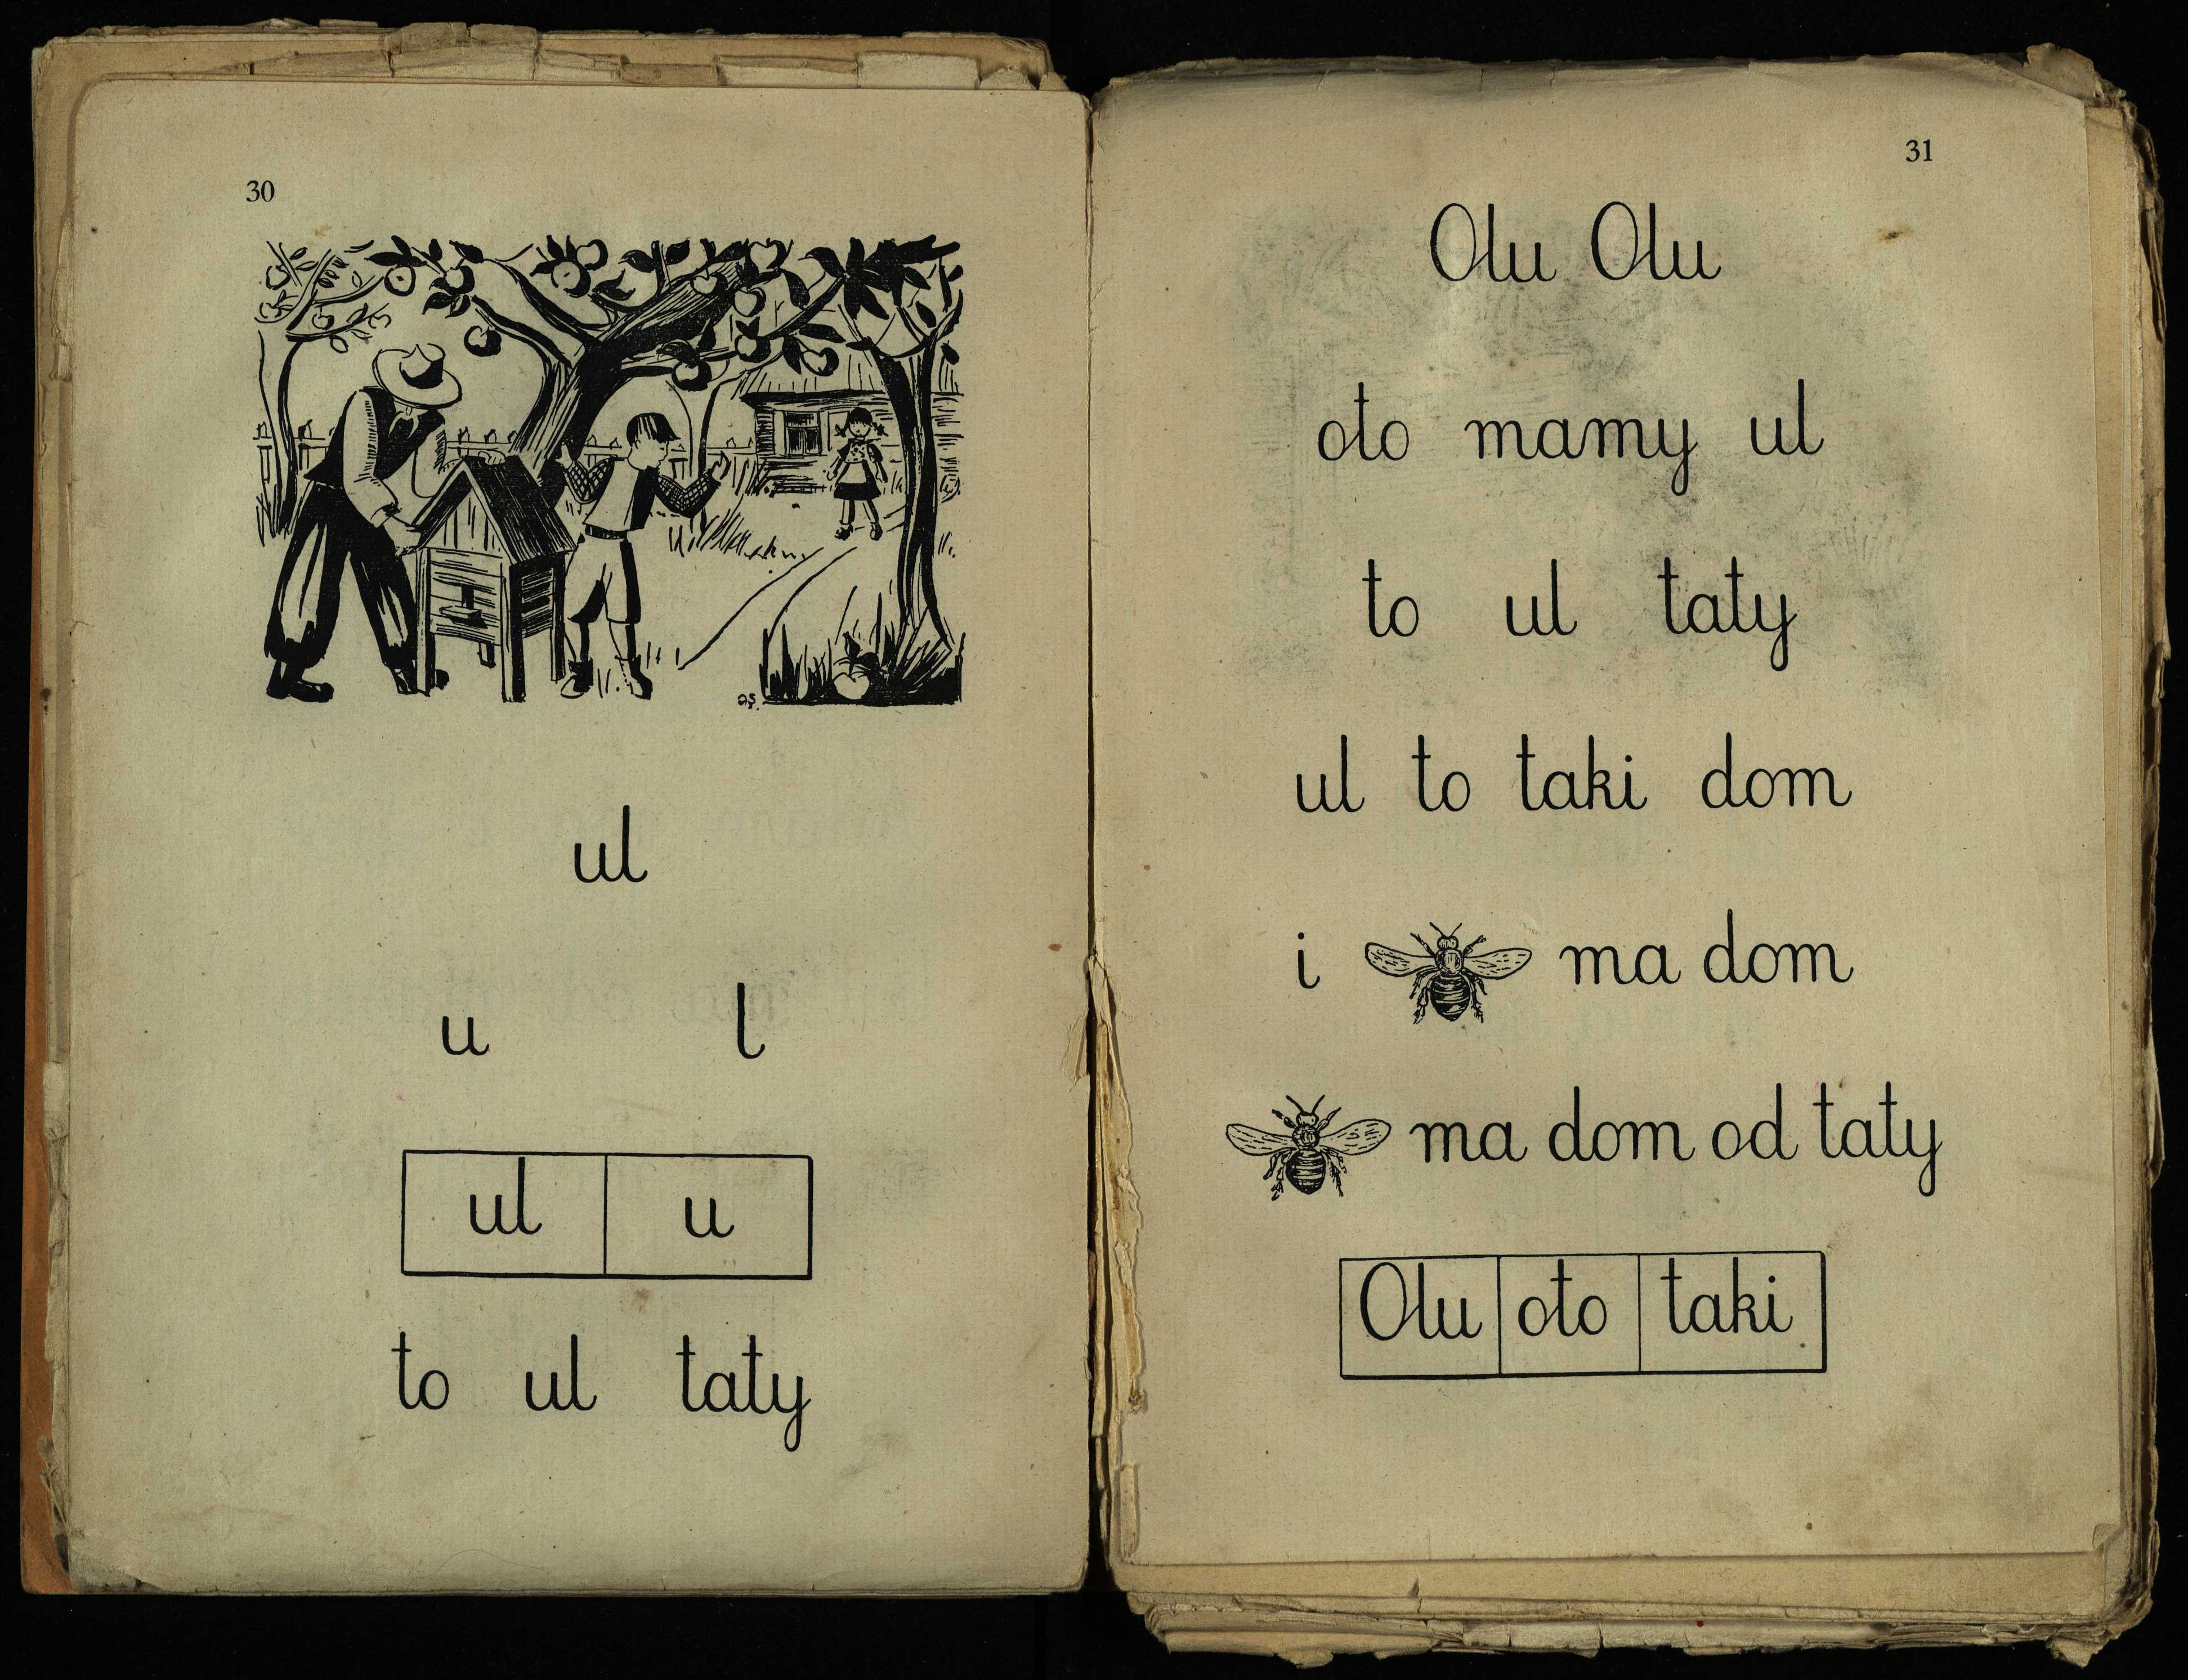 30
ul
u l
ul u
to ul taty
31
Olu Olu
oto mamy ul
to ul taty
ul to taki dom
i ma dom
ma dom od taty
Olu oto taki